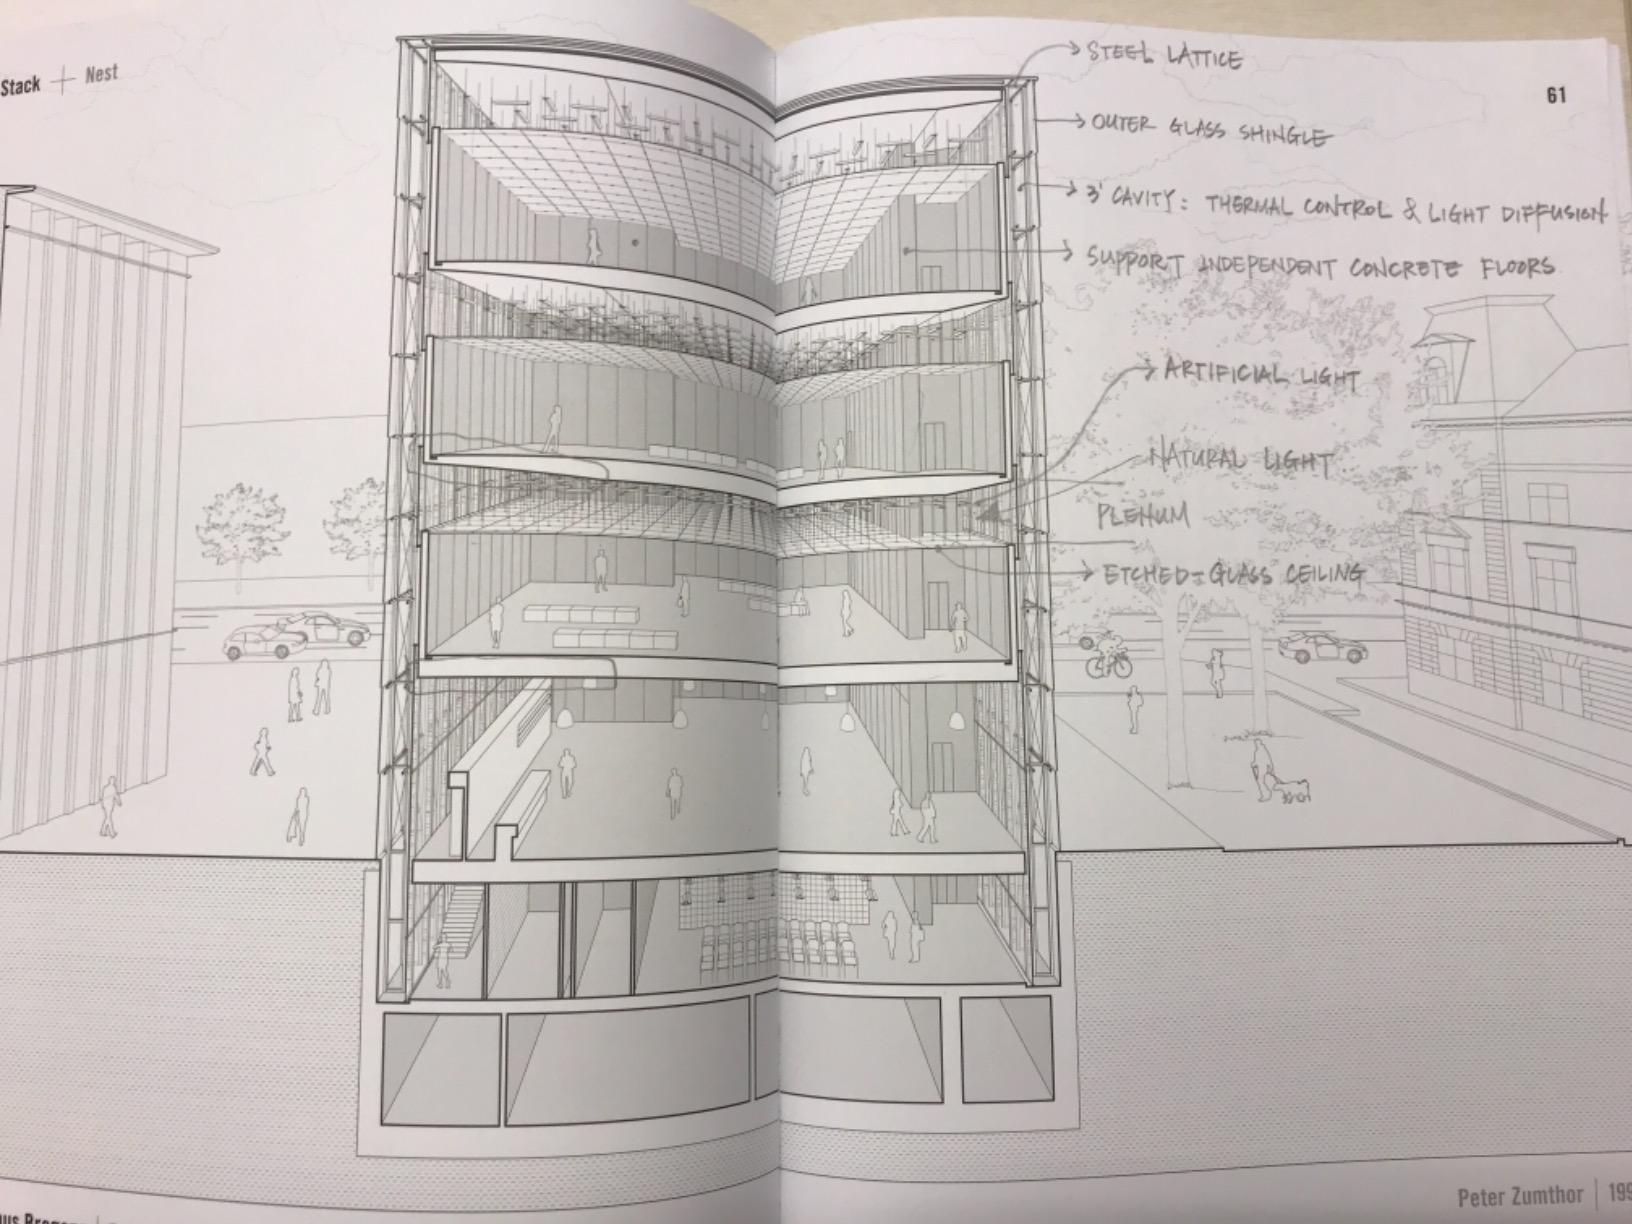 Stack + Nest
61
STEEL LATTICE
OUTER GLASS SHINGLE
3' CAVITY: THERMAL CONTROL & LIGHT DIFFUSION
SUPPORT INDEPENDENT CONCRETE FLOORS
ARTIFICIAL LIGHT
NATURAL LIGHT
PLENUM
ETCHED-GLASS CEILING
Peter Zumthor | 199